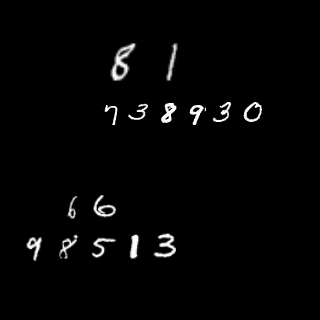 81
738930
66
98513